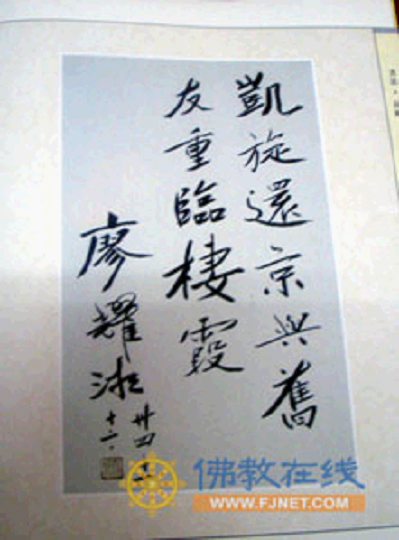 凱旋還京與舊
友重臨棲霞
廖耀湘
卅四
十二.
佛教在线
WWW.FJNET.COM